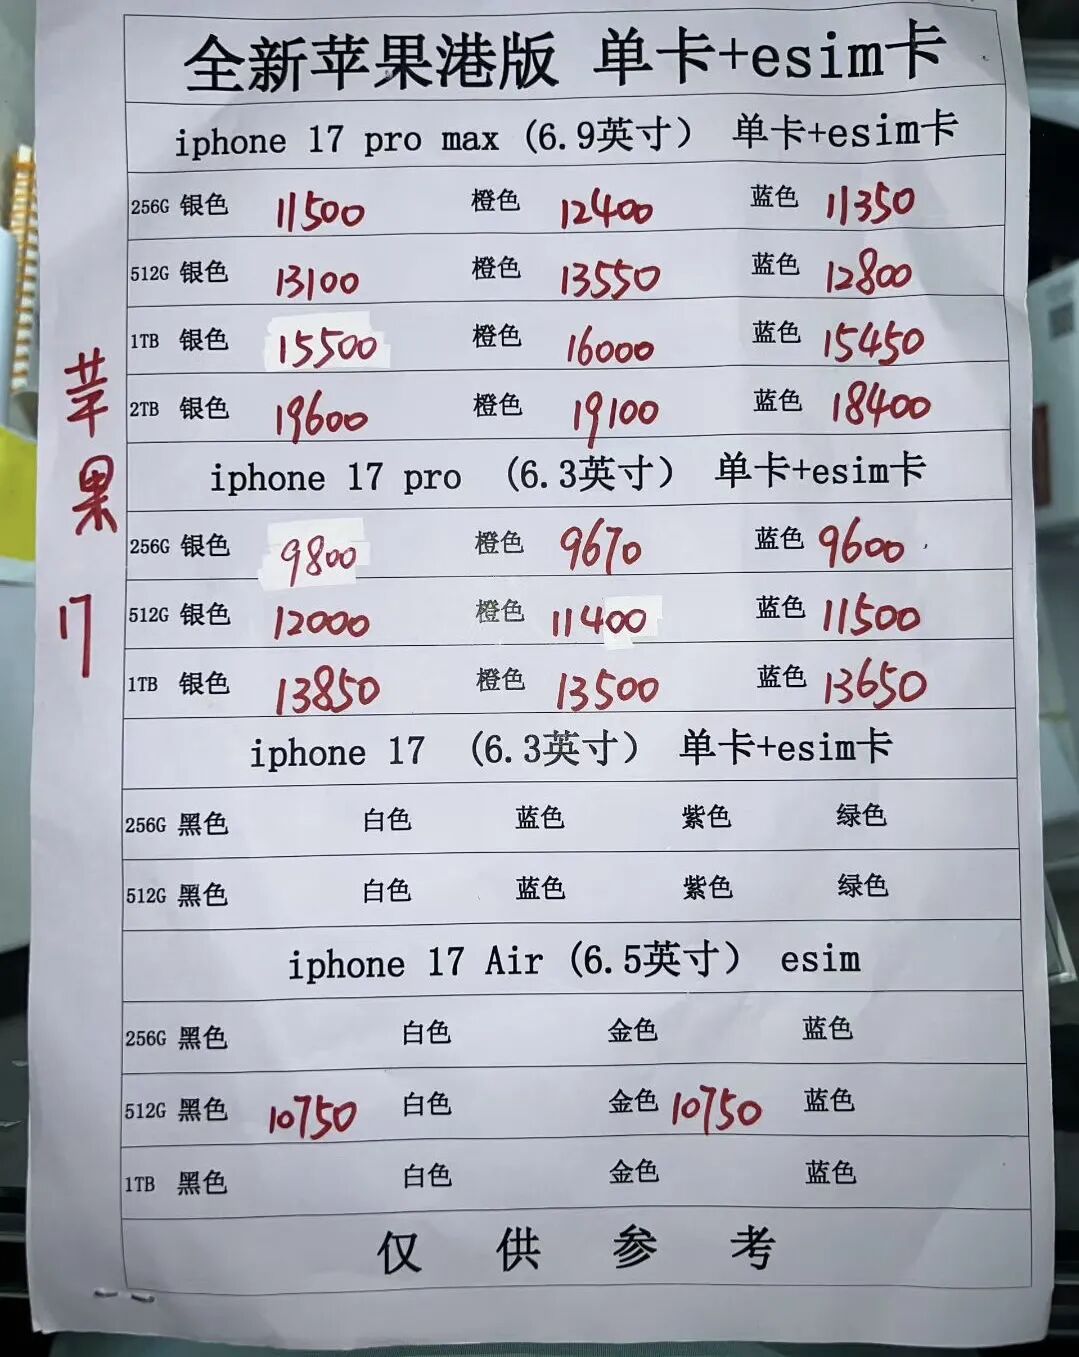 全新苹果港版 单卡+esim卡
iphone 17 pro max (6.9英寸) 单卡+esim卡
256G 银色 11500 橙色 12400 蓝色 11350
512G 银色 13100 橙色 13550 蓝色 12800
1TB 银色 15500 橙色 16000 蓝色 15450
2TB 银色 19600 橙色 19100 蓝色 18400
iphone 17 pro (6.3英寸) 单卡+esim卡
256G 银色 9800 橙色 9670 蓝色 9600
512G 银色 12000 橙色 11400 蓝色 11500
1TB 银色 13850 橙色 13500 蓝色 13650
iphone 17 (6.3英寸) 单卡+esim卡
256G 黑色 白色 蓝色 紫色 绿色
512G 黑色 白色 蓝色 紫色 绿色
iphone 17 Air (6.5英寸) esim
256G 黑色 白色 金色 蓝色
512G 黑色 10750 白色 金色 10750 蓝色
1TB 黑色 白色 金色 蓝色
仅供参考
苹果17